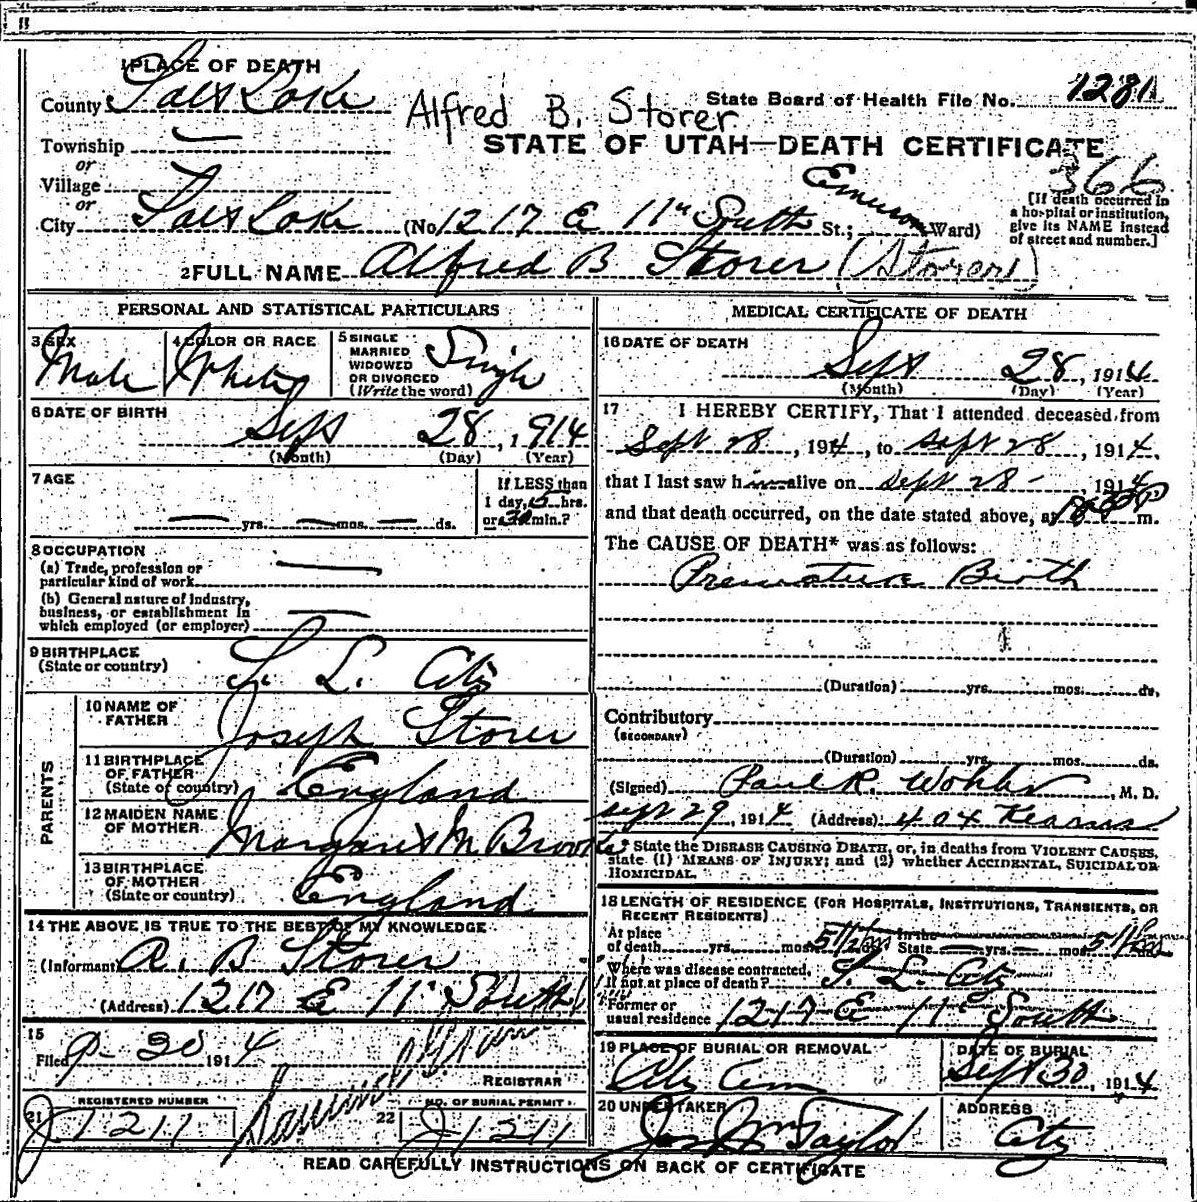 1 PLACE OF DEATH
County Salt Lake
Alfred B. Storer
State Board of Health File No. 1281
Township —
STATE OF UTAH—DEATH CERTIFICATE
366
or
Village
or
City Salt Lake (No. 1217 E 11th South St.; Emerson Ward)
[If death occurred in a hospital or institution, give its NAME instead of street and number.]
2 FULL NAME Alfred B Storer (Storer)
PERSONAL AND STATISTICAL PARTICULARS
3 SEX Male
4 COLOR OR RACE White
5 SINGLE MARRIED WIDOWED OR DIVORCED (Write the word) Single
6 DATE OF BIRTH
Sept 28, 1914
(Month) (Day) (Year)
7 AGE
— yrs. — mos. — ds.
If LESS than
1 day, 5 hrs.
or 30 min.?
8 OCCUPATION
(a) Trade, profession or
particular kind of work —
(b) General nature of industry,
business, or establishment in
which employed (or employer) —
9 BIRTHPLACE
(State or country) S. L. City
PARENTS
10 NAME OF
FATHER Joseph Storer
11 BIRTHPLACE
OF FATHER
(State or country) England
12 MAIDEN NAME
OF MOTHER Margaret M. Brooks
13 BIRTHPLACE
OF MOTHER
(State or country) England
14 THE ABOVE IS TRUE TO THE BEST OF MY KNOWLEDGE
(Informant) A. B Storer
(Address) 1217 E 11" South
15
Filed 9-30 1914
REGISTRAR
REGISTERED NUMBER
21 J1211
NO. OF BURIAL PERMIT
22 J1211
MEDICAL CERTIFICATE OF DEATH
16 DATE OF DEATH
Sept 28, 1914
(Month) (Day) (Year)
17 I HEREBY CERTIFY, That I attended deceased from
Sept 28, 1914, to Sept 28, 1914,
that I last saw him alive on Sept 28 -, 1914
and that death occurred, on the date stated above, at m.
The CAUSE OF DEATH* was as follows:
Premature Birth
(Duration) yrs. mos. ds.
Contributory
(SECONDARY)
(Duration) yrs. mos. ds.
(Signed) Paul R. M. D.
Sept 29, 1914 (Address) 404 Kearns
* State the DISEASE CAUSING DEATH, or, in deaths from VIOLENT CAUSES,
state (1) MEANS OF INJURY; and (2) whether ACCIDENTAL, SUICIDAL OR
HOMICIDAL.
18 LENGTH OF RESIDENCE (FOR HOSPITALS, INSTITUTIONS, TRANSIENTS, OR
RECENT RESIDENTS)
At place In the
of death yrs. mos. 5 1/2 hrs State — yrs. — mos. 5 1/2 hrs
Where was disease contracted,
If not at place of death? S. L. City
Former or
usual residence 1217 E 11" South
19 PLACE OF BURIAL OR REMOVAL
City Cem
DATE OF BURIAL
Sept 30, 1914
20 UNDERTAKER
Jos Wm Taylor
ADDRESS
City
READ CAREFULLY INSTRUCTIONS ON BACK OF CERTIFICATE